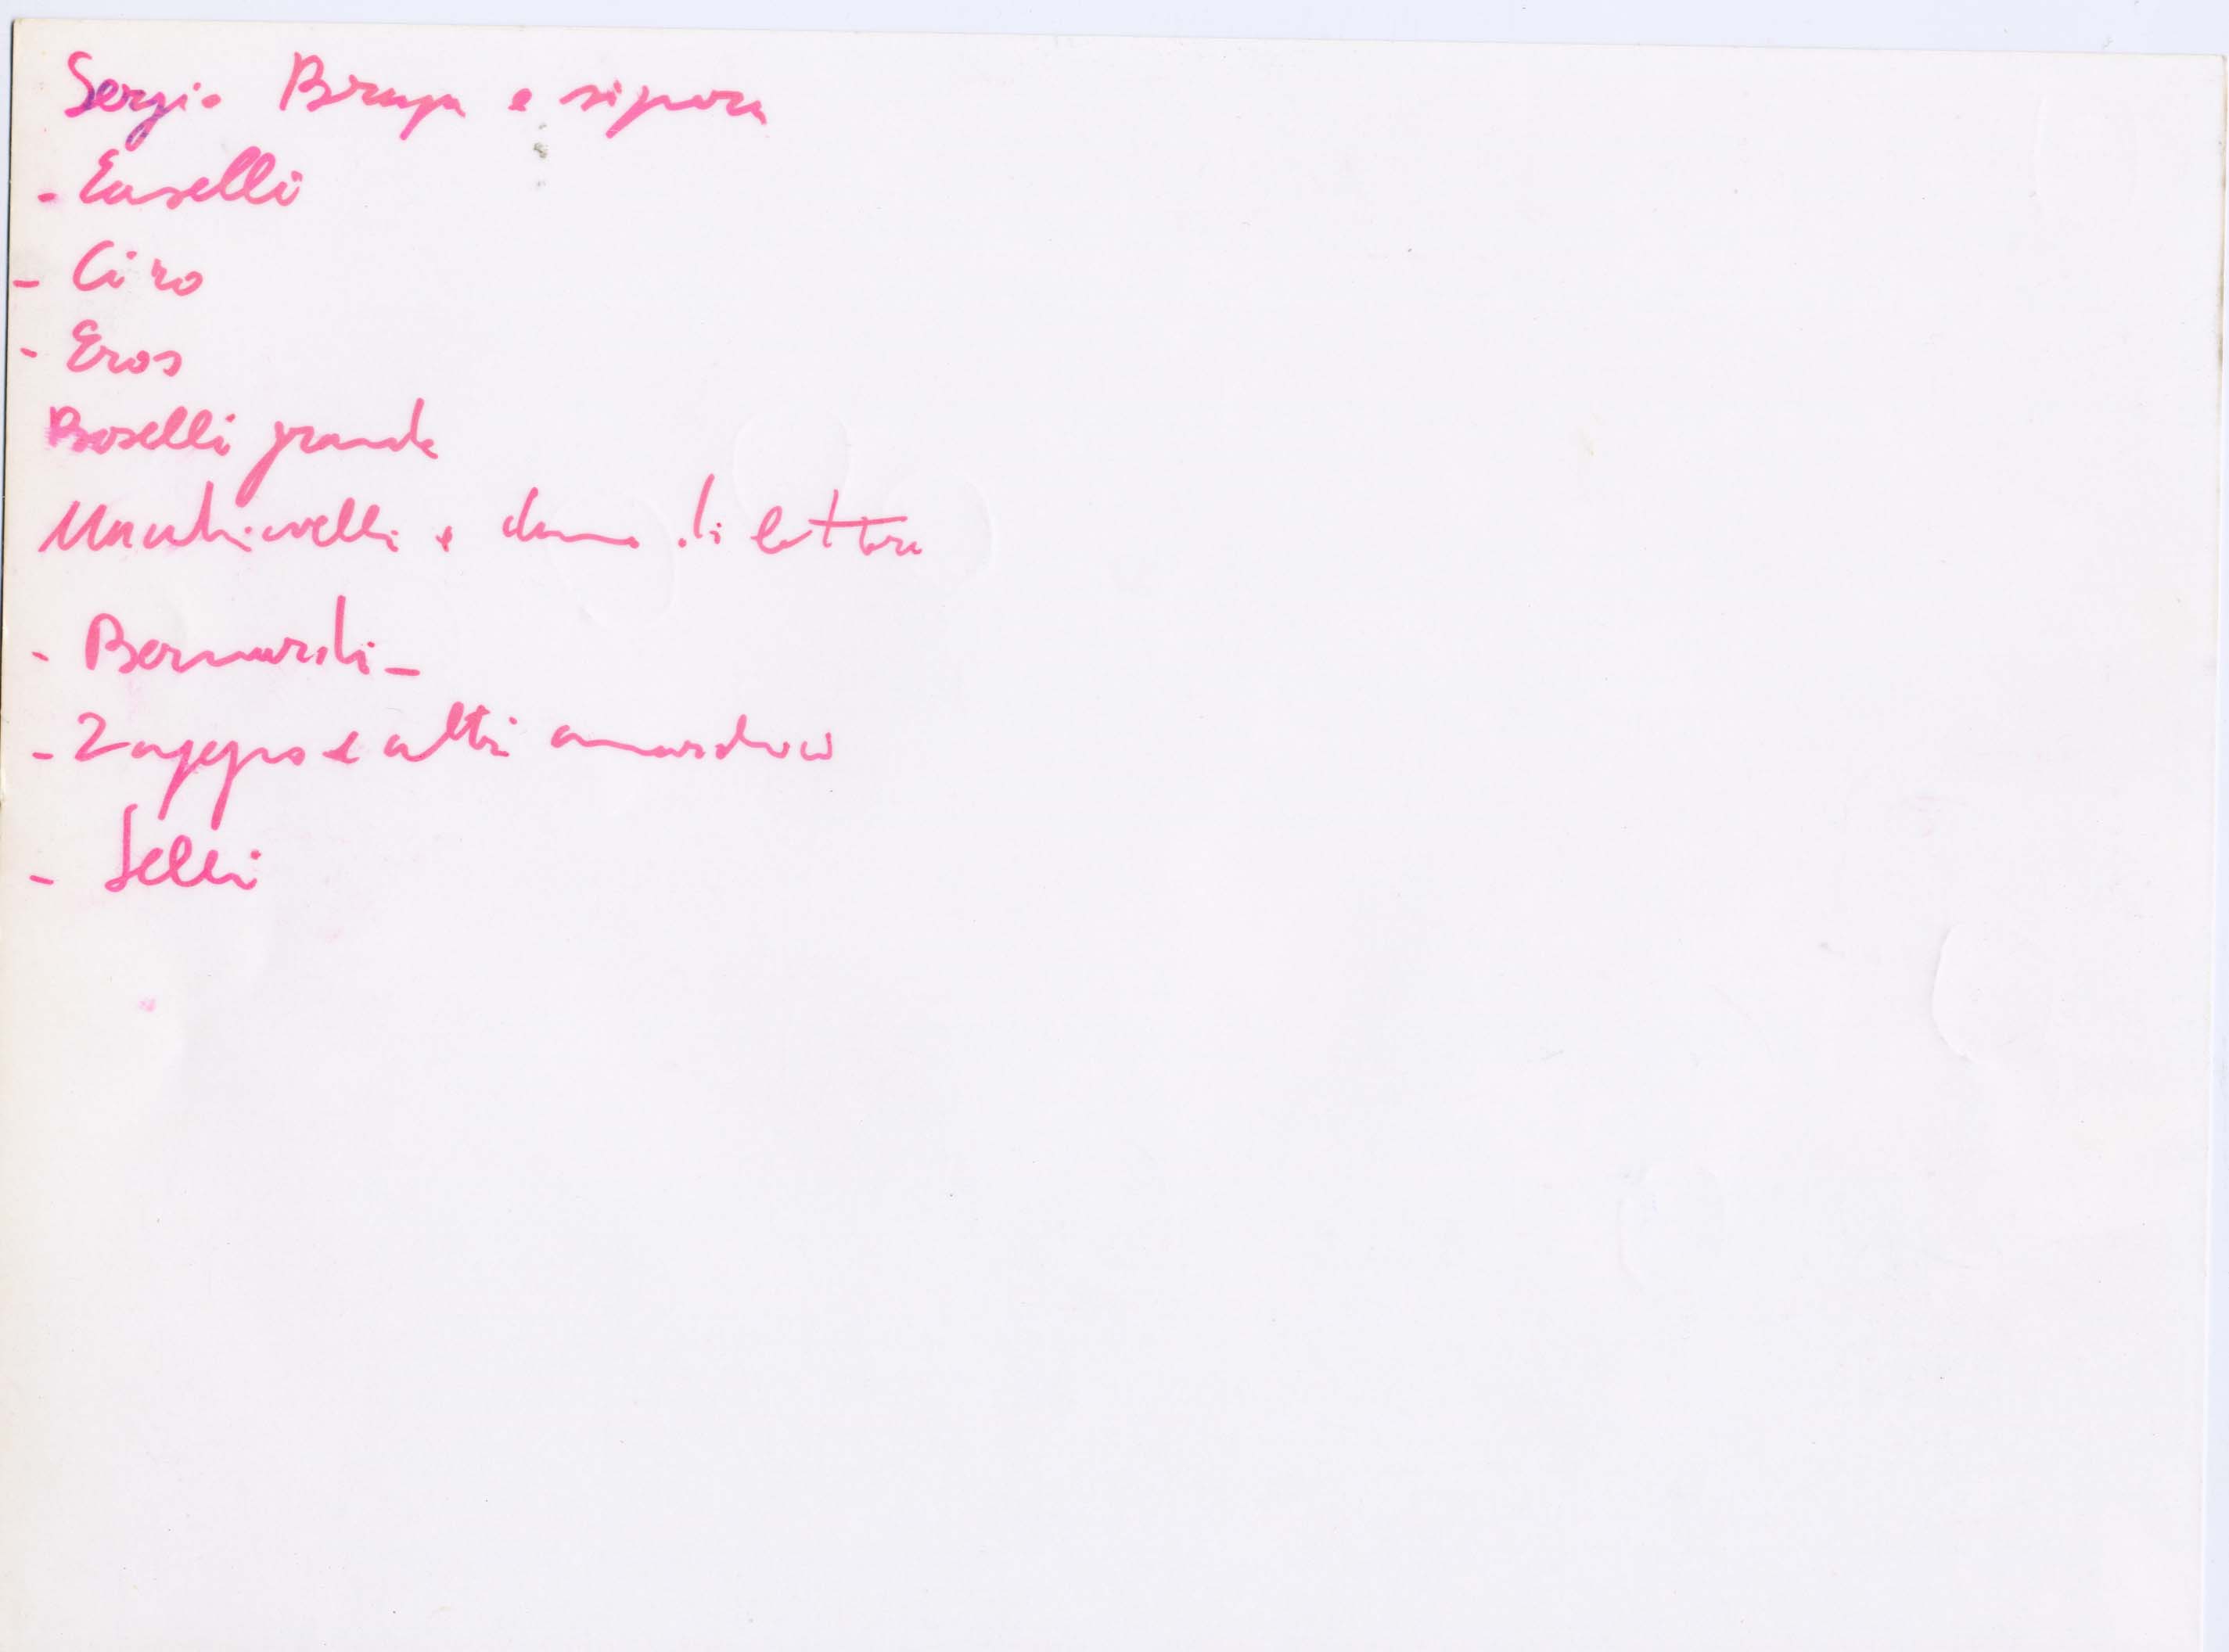 Sergio Braga e signora
- Caselli
- Ciro
- Eros
Boselli grande
Macchiavelli e dama di lettere
- Bernardi -
- Zappo e altri
- Selli